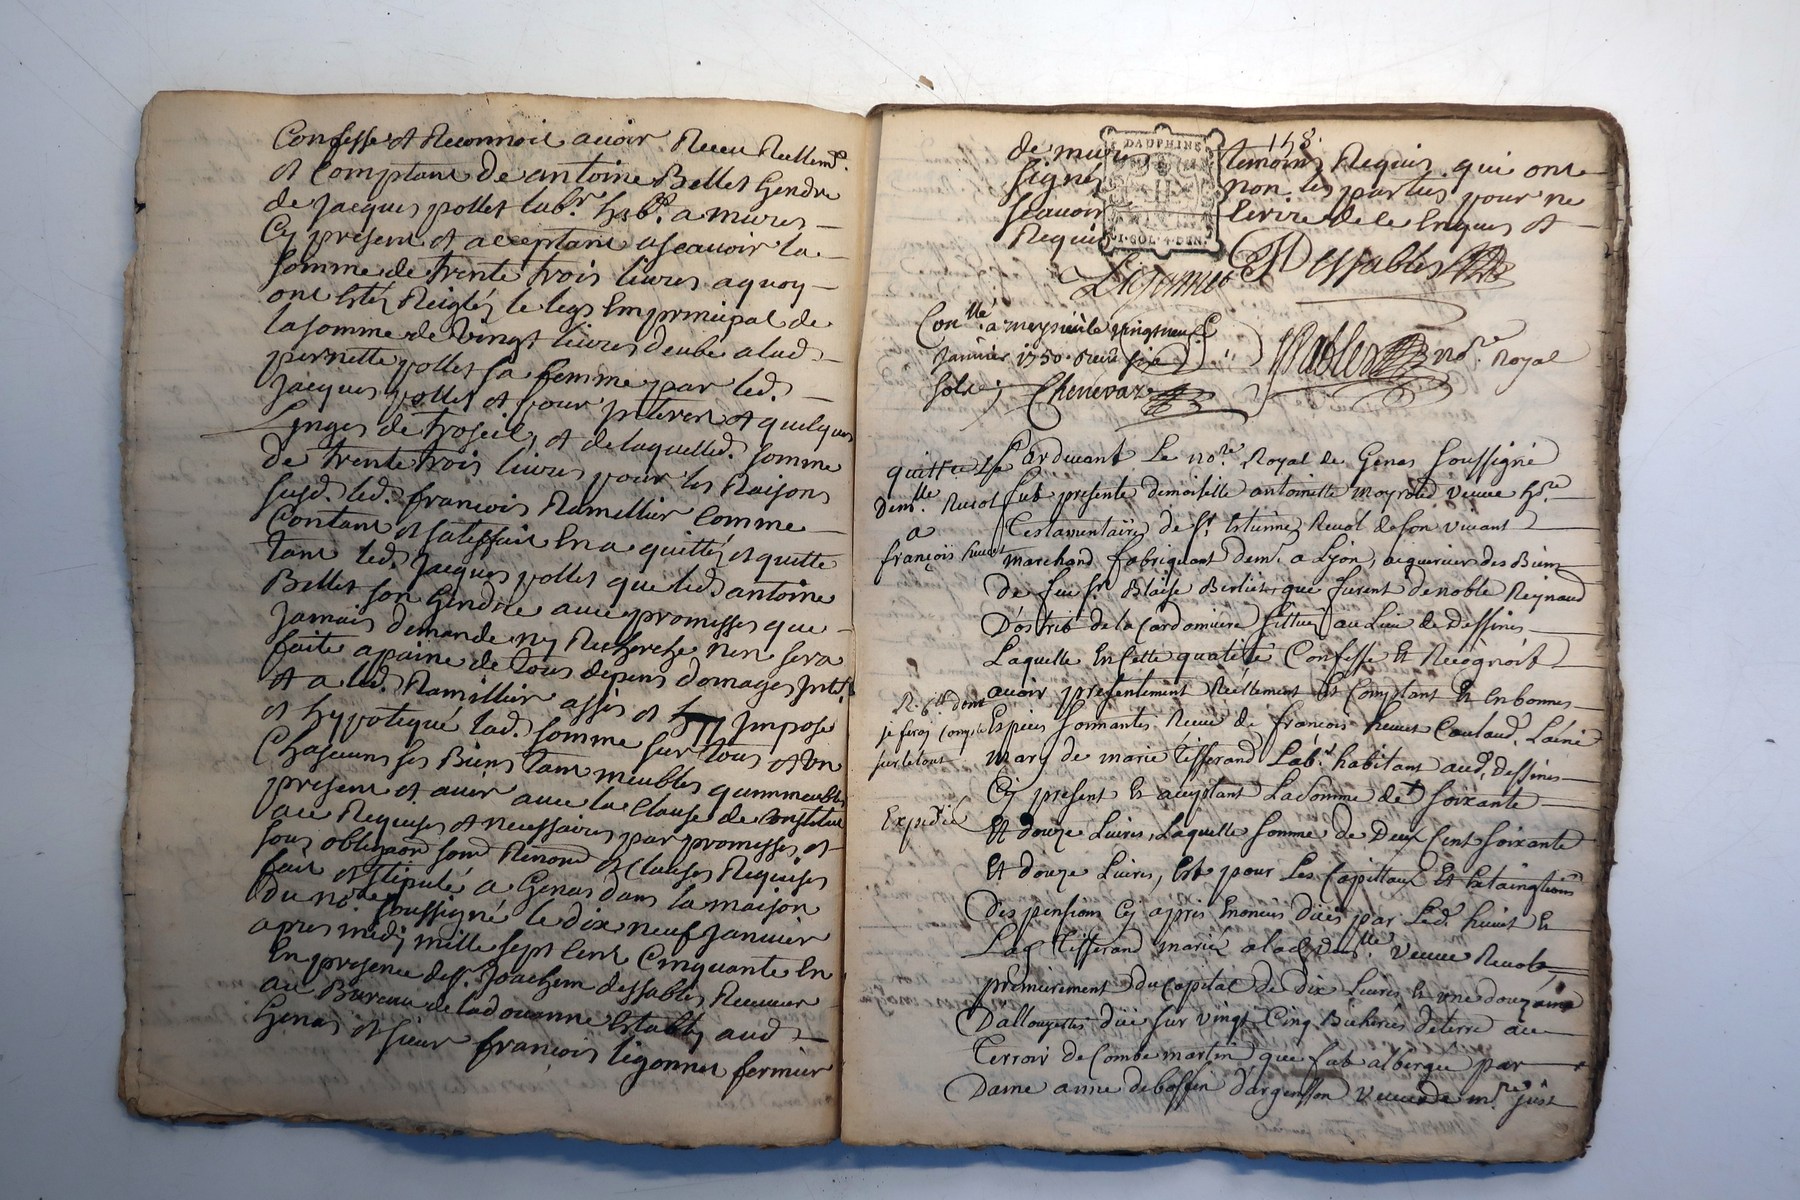 Confesse et Reconnoit avoir Receu Reellemt.
et Comptant De antoine Bellet Gendre
de Jacques pollet labr. hab. a mures
Cy present et acceptant ascavoir la
somme de trente trois livres aquoy
ont estés Reiglés le legs En principal de
la somme de vingt livres deube a lad.
pernette pollet sa femme par led.
Jacques pollet et pour Interest et quelques
Linges de troseil, et de laquelled. somme
de trente trois livres pour les Raisons
susd. led. françois Ramillier Comme
Contant et satisfait En a quitté et quitte
tant led. Jacques pollet que led. antoine
Bellet son Gendre avec promesses que
Jamais demande ny Recherche n'en sera
faite a paine de tous depens domages Intts.
et a led. Ramillier assis et Imposé
et hypotequé lad. somme sur tous et un
Chascuns ses Biens tant meubles qu'immeubles
present et avir avec la Clause de Constitut
avec Requises et necessaires par promesses et
sous obligaon soumd Renond et Clauses Requises
fait et stipulé a Genas dans la maison
Du nore. soussigné le dix neuf Janvier
apres midy mille sept cent Cinquante En
presence de sr. Joachim dessables Receveur
au Bureau de la douanne Estably aud.
Genas et sieur françois ligonnet fermier
148.
de mures temoins Requis qui ont
signés non les parties pour ne
scavoir Ecrire de ce Enquis et
Requis
DAUPHINE
1·SOL·4·DEN.
Ligonnet Dessables
Conllé a meysieu le vingtneuf
Janvier 1750. Receu six
sols; Chenevaz
Sables nore. Royal
quittce. Lade.
Demlle. Revol
a
françois huvet
Pardevant Le nore. Royal de Genas soussigné
fut presente demoiselle antoinette mayrole veuve hre.
Testamentaire de sr. Estienne Revol de son vivant
marchand fabriquant demt. a Lyon, acquereur des Biens
de feu sr. Blaise Berliet que furent de noble Reynaud
D'ostrie de la Cardonniere sittués au Lieu de Dessines
Laquelle En Cette qualité Confesse Et Recognoit
avoir presentement Réellement Et Comptant Et En bonnes
Espèces sonnantes Receu de françois huvet Caulaud. L'ainé
mary de marie Tisserand Labr. habitant aud. Dessines
Cy present Et acceptant La somme de soixante
Et douze Livres, Laquelle somme de Deux Cent soixante
Et douze Livres, Est pour Les Capittaux Et Extainctions
Des pensions Cy apres Enoncées Dües par Led. huvet Et
Lad. Tisserand mariés a lad. demlle. veuve Revol,
premierement du Capital de dix Livres Et une douzaine
D'allouettes düe sur vingt Cinq Bicherées de terre au
Terroir de Combe martin que fut albergée par
Dame anne de boffin d'argenson veuve de mre. just
R. 6lt dont
je feray Compte
sur le tout
Expedié